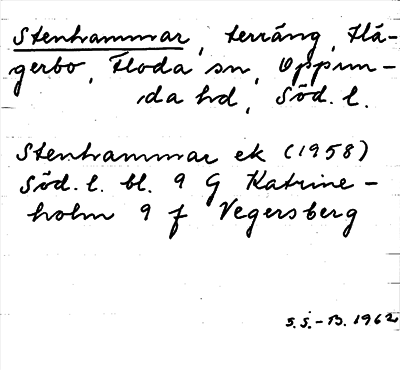 Stenhammar, terräng, Hä-
gerbo, Floda sn, Oppun-
da hd, Söd. l.
Stenhammar ek (1958)
Söd. l. bl. 9 G Katrine-
holm 9 f Vegersberg
S.S.-B. 1962